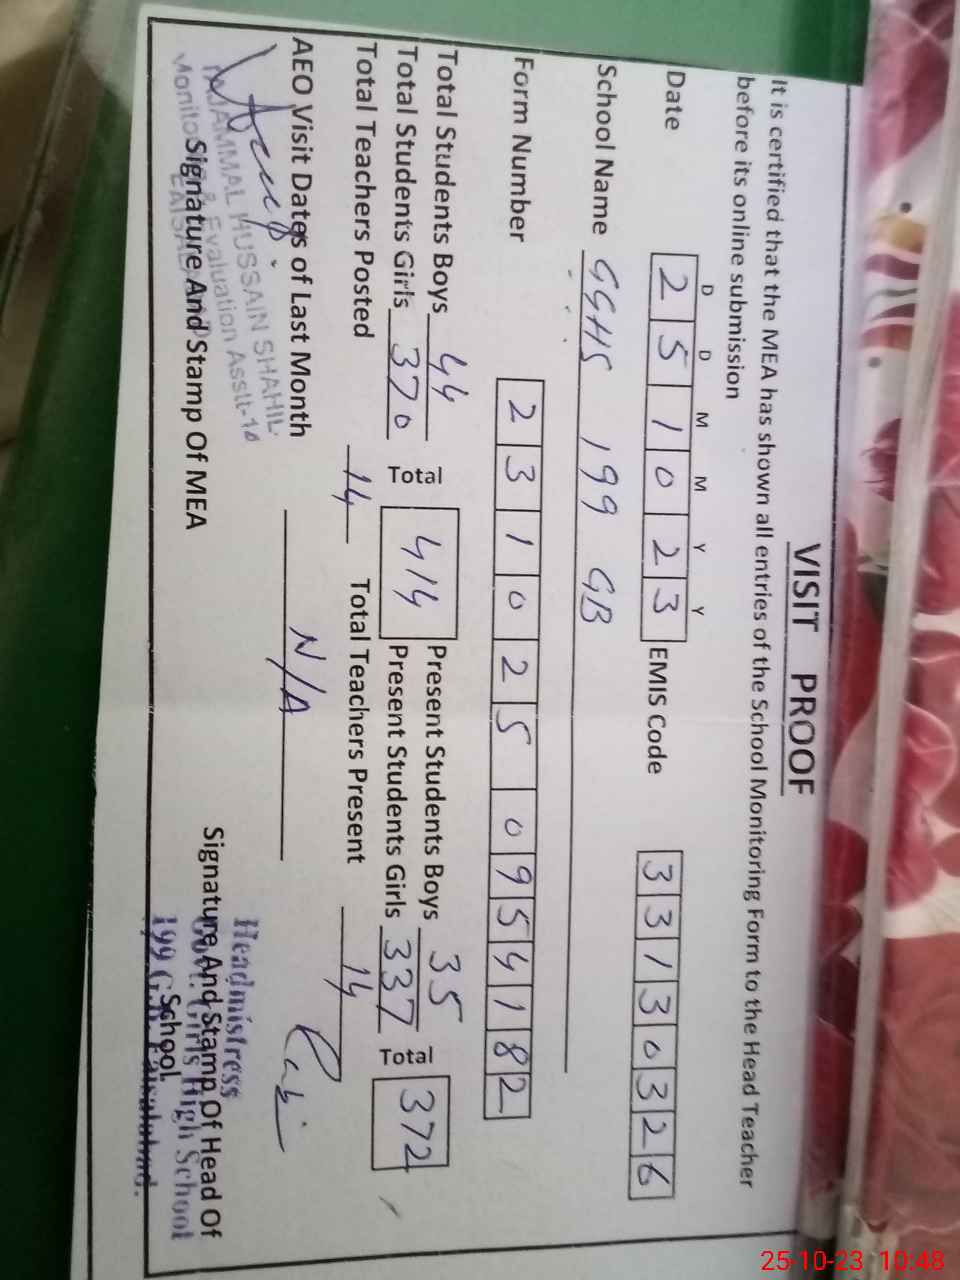 VISIT PROOF
It is certified that the MEA has shown all entries of the School Monitoring Form to the Head Teacher
before its online submission
D D M M Y Y
Date 2 5 1 0 2 3 EMIS Code 3 3 1 3 0 3 2 6
School Name GGHS 199 GB
Form Number 2 3 1 0 2 5 0 9 5 4 1 8 2
Total Students Boys 44 Total 414 Present Students Boys 35 Total 372
Total Students Girls 370 Present Students Girls 337
Total Teachers Posted 14 Total Teachers Present 14
AEO Visit Dates of Last Month N/A
HUSSAIN SHAHIL
Monitoring & Evaluation Asstt-14
Signature And Stamp Of MEA
Headmistress
Govt. Girls High School
199 G.B. Faisalabad.
Signature And Stamp Of Head Of
School
25-10-23 10:48